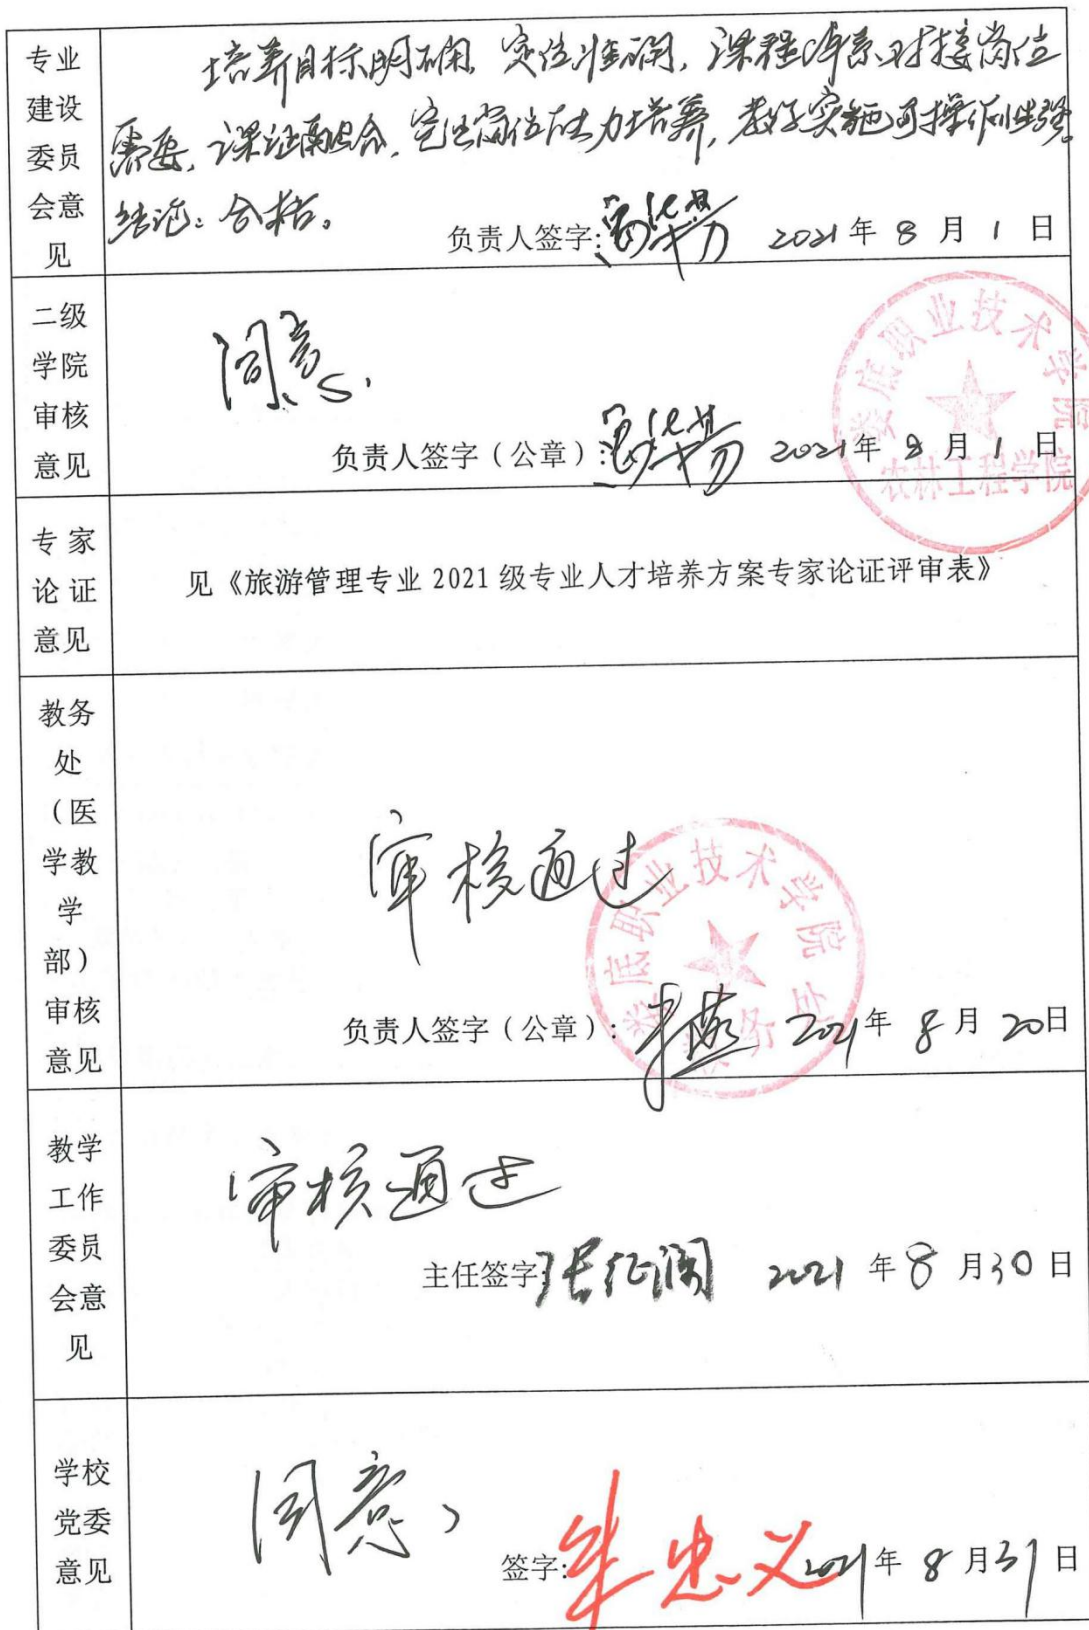 专业
建设
委员
会意
见
培养目标明确,定位准确,课程体系对接岗位
需要,课证融合,突出岗位能力培养,教学实施可操作性强。
结论:合格。
负责人签字: 2021年 8 月 1 日
二级
学院
审核
意见
同意.
负责人签字(公章): 2021年 8 月 1 日
娄底职业技术学院
农林工程学院
专家
论证
意见
见《旅游管理专业 2021 级专业人才培养方案专家论证评审表》
教务
处
(医
学教
学
部)
审核
意见
审核通过
娄底职业技术学院
教务处
负责人签字(公章): 2021年 8 月 20日
教学
工作
委员
会意
见
审核通过
主任签字: 2021 年 8 月 30 日
学校
党委
意见
同意、
签字: 忠义 2021年 8 月31日